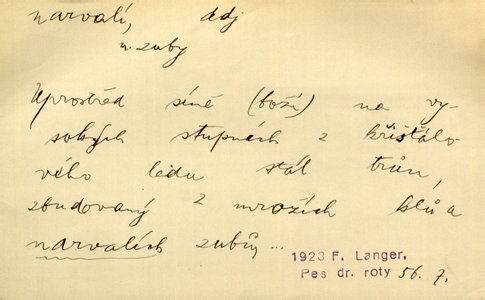 narvalí, adj
n. zuby
Uprostřed síně (boží) na vy-
sokých stupních z křišťálo-
vého ledu stál trůn,
zbudovaný z mrožích klů a
narvalích zubů, ...
1923 F. Langer,
Pes dr. roty 56. 7.